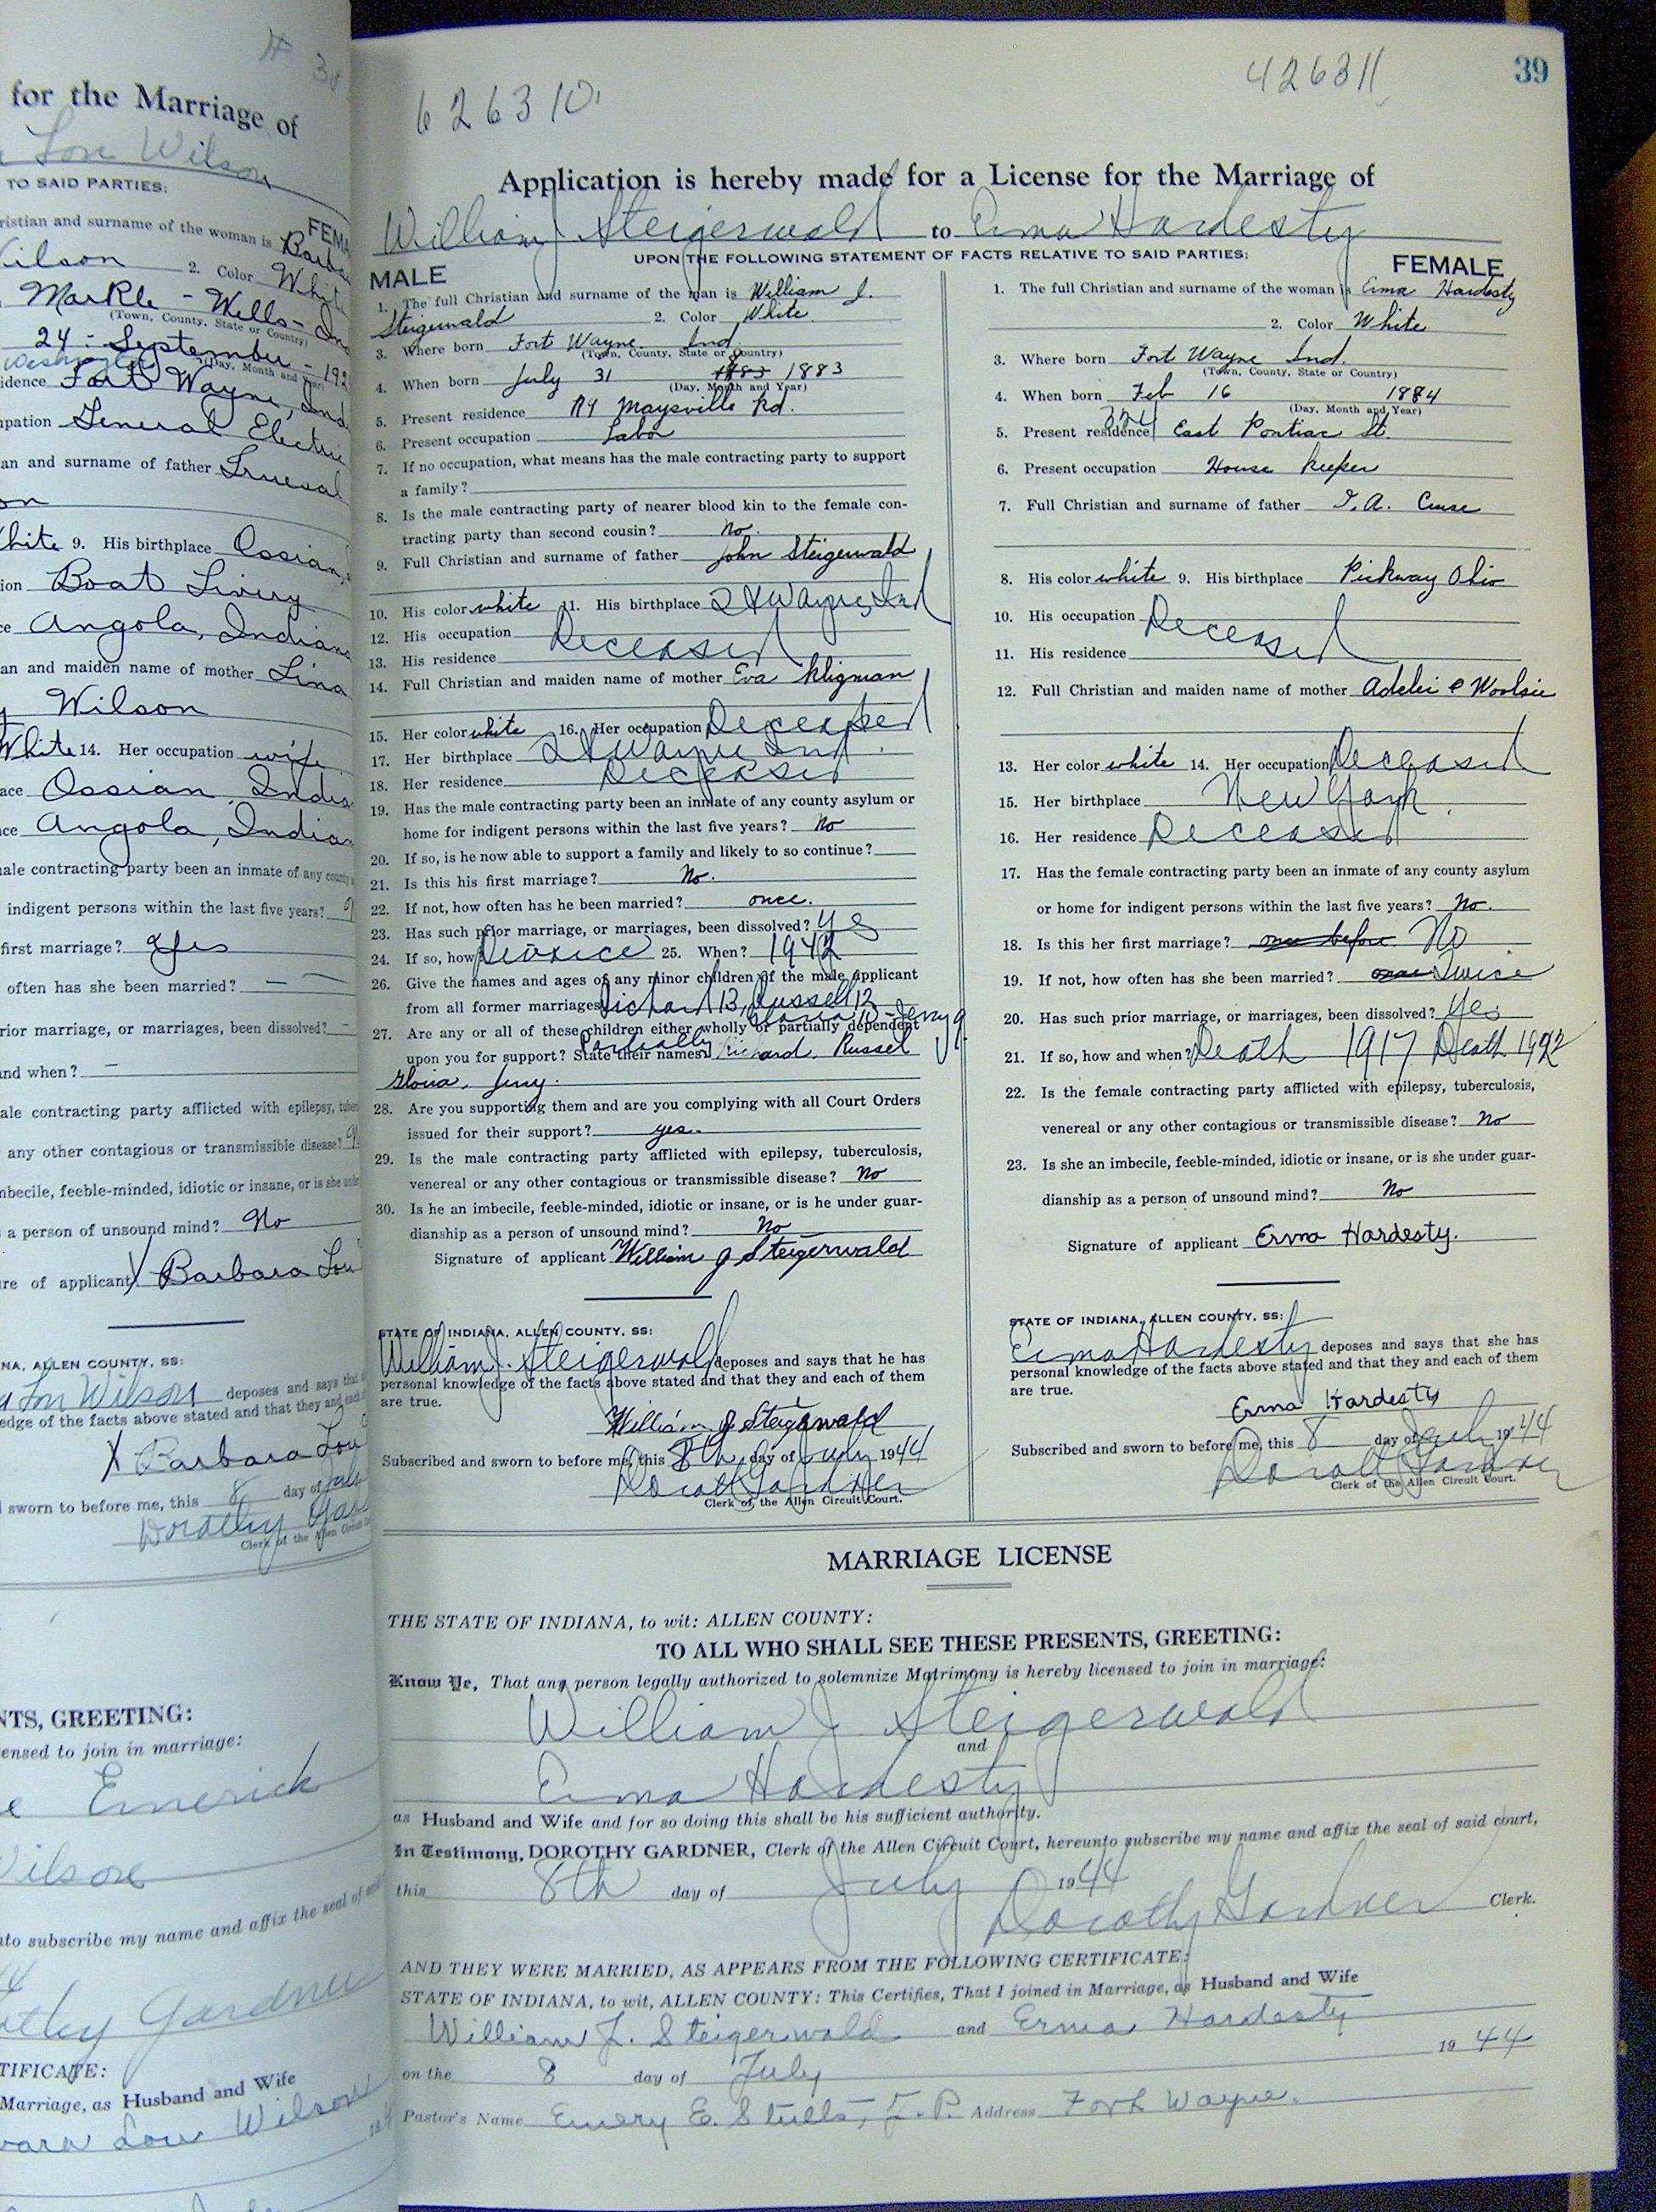 for the Marriage of
Lou Wilson
TO SAID PARTIES:
ristian and surname of the woman is Barba
FEMA
Wilson 2. Color Whit
Markle - Wells - Ind
(Town, County, State or Country)
24 - September - 192
(Day, Month and Year)
idence Fort Wayne, Ind.
pation General Electric
an and surname of father
on
White 9. His birthplace Ossian,
ion Boat Livery
ce Angola, Indiana
an and maiden name of mother Lina
Wilson
White 14. Her occupation wife
ace Ossian, Indian
ce Angola, Indian
ale contracting party been an inmate of any county
indigent persons within the last five years?
first marriage? Yes
often has she been married? —
rior marriage, or marriages, been dissolved? -
nd when? —
ale contracting party afflicted with epilepsy, tuber
any other contagious or transmissible disease?
mbecile, feeble-minded, idiotic or insane, or is she under
a person of unsound mind? No
re of applicant X Barbara Lou
NA, ALLEN COUNTY, SS:
a Lou Wilson deposes and says that
edge of the facts above stated and that they and each
X Barbara Lou
sworn to before me, this 8 day of July
Dorothy Gar
Clerk of the Allen Circuit
NTS, GREETING:
ensed to join in marriage:
e Emerick
Wilson
nto subscribe my name and affix the seal of said
othy Gardner
TIFICATE:
Marriage, as Husband and Wife
bara Lou Wilson
39
626310
426311
Application is hereby made for a License for the Marriage of
William J Steigerwald to Erma Hardesty
UPON THE FOLLOWING STATEMENT OF FACTS RELATIVE TO SAID PARTIES:
MALE
1. The full Christian and surname of the man is William J.
Steigerwald 2. Color White
3. Where born Fort Wayne Ind.
(Town, County, State or Country)
4. When born July 31 1883 1883
(Day, Month and Year)
5. Present residence R4 Maysville Rd.
6. Present occupation Labor
7. If no occupation, what means has the male contracting party to support
a family?
8. Is the male contracting party of nearer blood kin to the female con-
tracting party than second cousin? No.
9. Full Christian and surname of father John Steigerwald
10. His color white 11. His birthplace Ft Wayne, Ind
12. His occupation Deceased
13. His residence
14. Full Christian and maiden name of mother Eva Kligman
15. Her color white 16. Her occupation Deceased
17. Her birthplace Ft Wayne Ind.
18. Her residence Deceased
19. Has the male contracting party been an inmate of any county asylum or
home for indigent persons within the last five years? No
20. If so, is he now able to support a family and likely to so continue?
21. Is this his first marriage? No.
22. If not, how often has he been married? once.
23. Has such prior marriage, or marriages, been dissolved? Yes
24. If so, how? Divorce 25. When? 1942
26. Give the names and ages of any minor children of the male applicant
from all former marriages Richard 13, Russell 12
Gloria 10 - Jerry 9
27. Are any or all of these children either wholly or partially dependent
Partially
upon you for support? State their names. Richard. Russel
Gloria. Jerry.
28. Are you supporting them and are you complying with all Court Orders
issued for their support? yes.
29. Is the male contracting party afflicted with epilepsy, tuberculosis,
venereal or any other contagious or transmissible disease? No
30. Is he an imbecile, feeble-minded, idiotic or insane, or is he under guar-
dianship as a person of unsound mind? No
Signature of applicant William J Steigerwald
STATE OF INDIANA, ALLEN COUNTY, SS:
William J. Steigerwald deposes and says that he has
personal knowledge of the facts above stated and that they and each of them
are true.
William J Steigerwald
Subscribed and sworn to before me, this 8th day of July 1944
Dorothy Gardner
Clerk of the Allen Circuit Court.
FEMALE
1. The full Christian and surname of the woman is Erma Hardesty
2. Color White
3. Where born Fort Wayne Ind.
(Town, County, State or Country)
4. When born Feb 16 1884
(Day, Month and Year)
5. Present residence East Pontiac St.
6. Present occupation House keeper
7. Full Christian and surname of father
8. His color white 9. His birthplace Pickway Ohio
10. His occupation Deceased
11. His residence
12. Full Christian and maiden name of mother
13. Her color white 14. Her occupation Deceased
15. Her birthplace New York.
16. Her residence Deceased
17. Has the female contracting party been an inmate of any county asylum
or home for indigent persons within the last five years? No.
18. Is this her first marriage? once before No
19. If not, how often has she been married? once Twice
20. Has such prior marriage, or marriages, been dissolved? Yes
21. If so, how and when? Death 1917 Death 1942
22. Is the female contracting party afflicted with epilepsy, tuberculosis,
venereal or any other contagious or transmissible disease? No
23. Is she an imbecile, feeble-minded, idiotic or insane, or is she under guar-
dianship as a person of unsound mind? No
Signature of applicant Erma Hardesty.
STATE OF INDIANA, ALLEN COUNTY, SS:
Erma Hardesty deposes and says that she has
personal knowledge of the facts above stated and that they and each of them
are true.
Erma Hardesty
Subscribed and sworn to before me, this 8 day of July 1944
Dorothy Gardner
Clerk of the Allen Circuit Court.
MARRIAGE LICENSE
THE STATE OF INDIANA, to wit: ALLEN COUNTY:
TO ALL WHO SHALL SEE THESE PRESENTS, GREETING:
Know Ye, That any person legally authorized to solemnize Matrimony is hereby licensed to join in marriage:
William J. Steigerwald
and
Erma Hardesty
as Husband and Wife and for so doing this shall be his sufficient authority.
In Testimony, DOROTHY GARDNER, Clerk of the Allen Circuit Court, hereunto subscribe my name and affix the seal of said court,
this 8th day of July 1944
Dorothy Gardner Clerk.
AND THEY WERE MARRIED, AS APPEARS FROM THE FOLLOWING CERTIFICATE:
STATE OF INDIANA, to wit, ALLEN COUNTY: This Certifies, That I joined in Marriage, as Husband and Wife
William J. Steigerwald and Erma Hardesty
on the 8 day of July 1944
Pastor's Name Emery E. Stults, J. P. Address Fort Wayne.